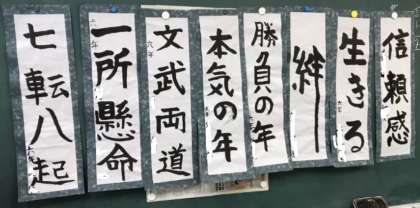 信頼感
生きる
絆
勝負の年
本気の年
文武両道
六年
一所懸命
七転八起